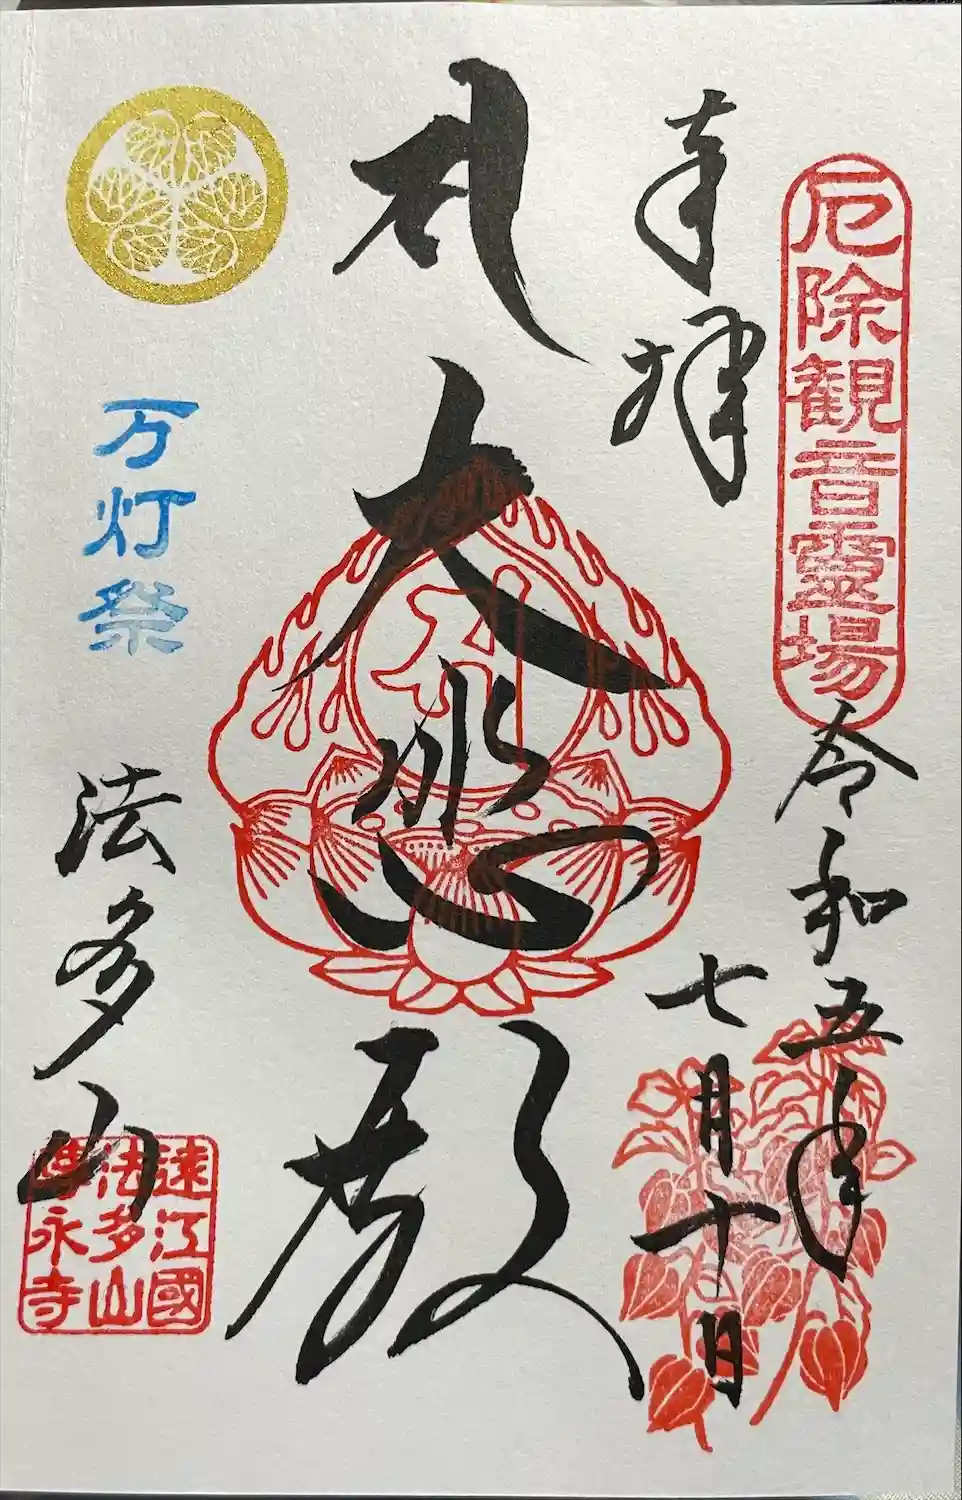 厄除観音霊場
奉拝
令和五年
七月十日
大悲殿
万灯祭
法多山
遠江國
法多山
尊永寺